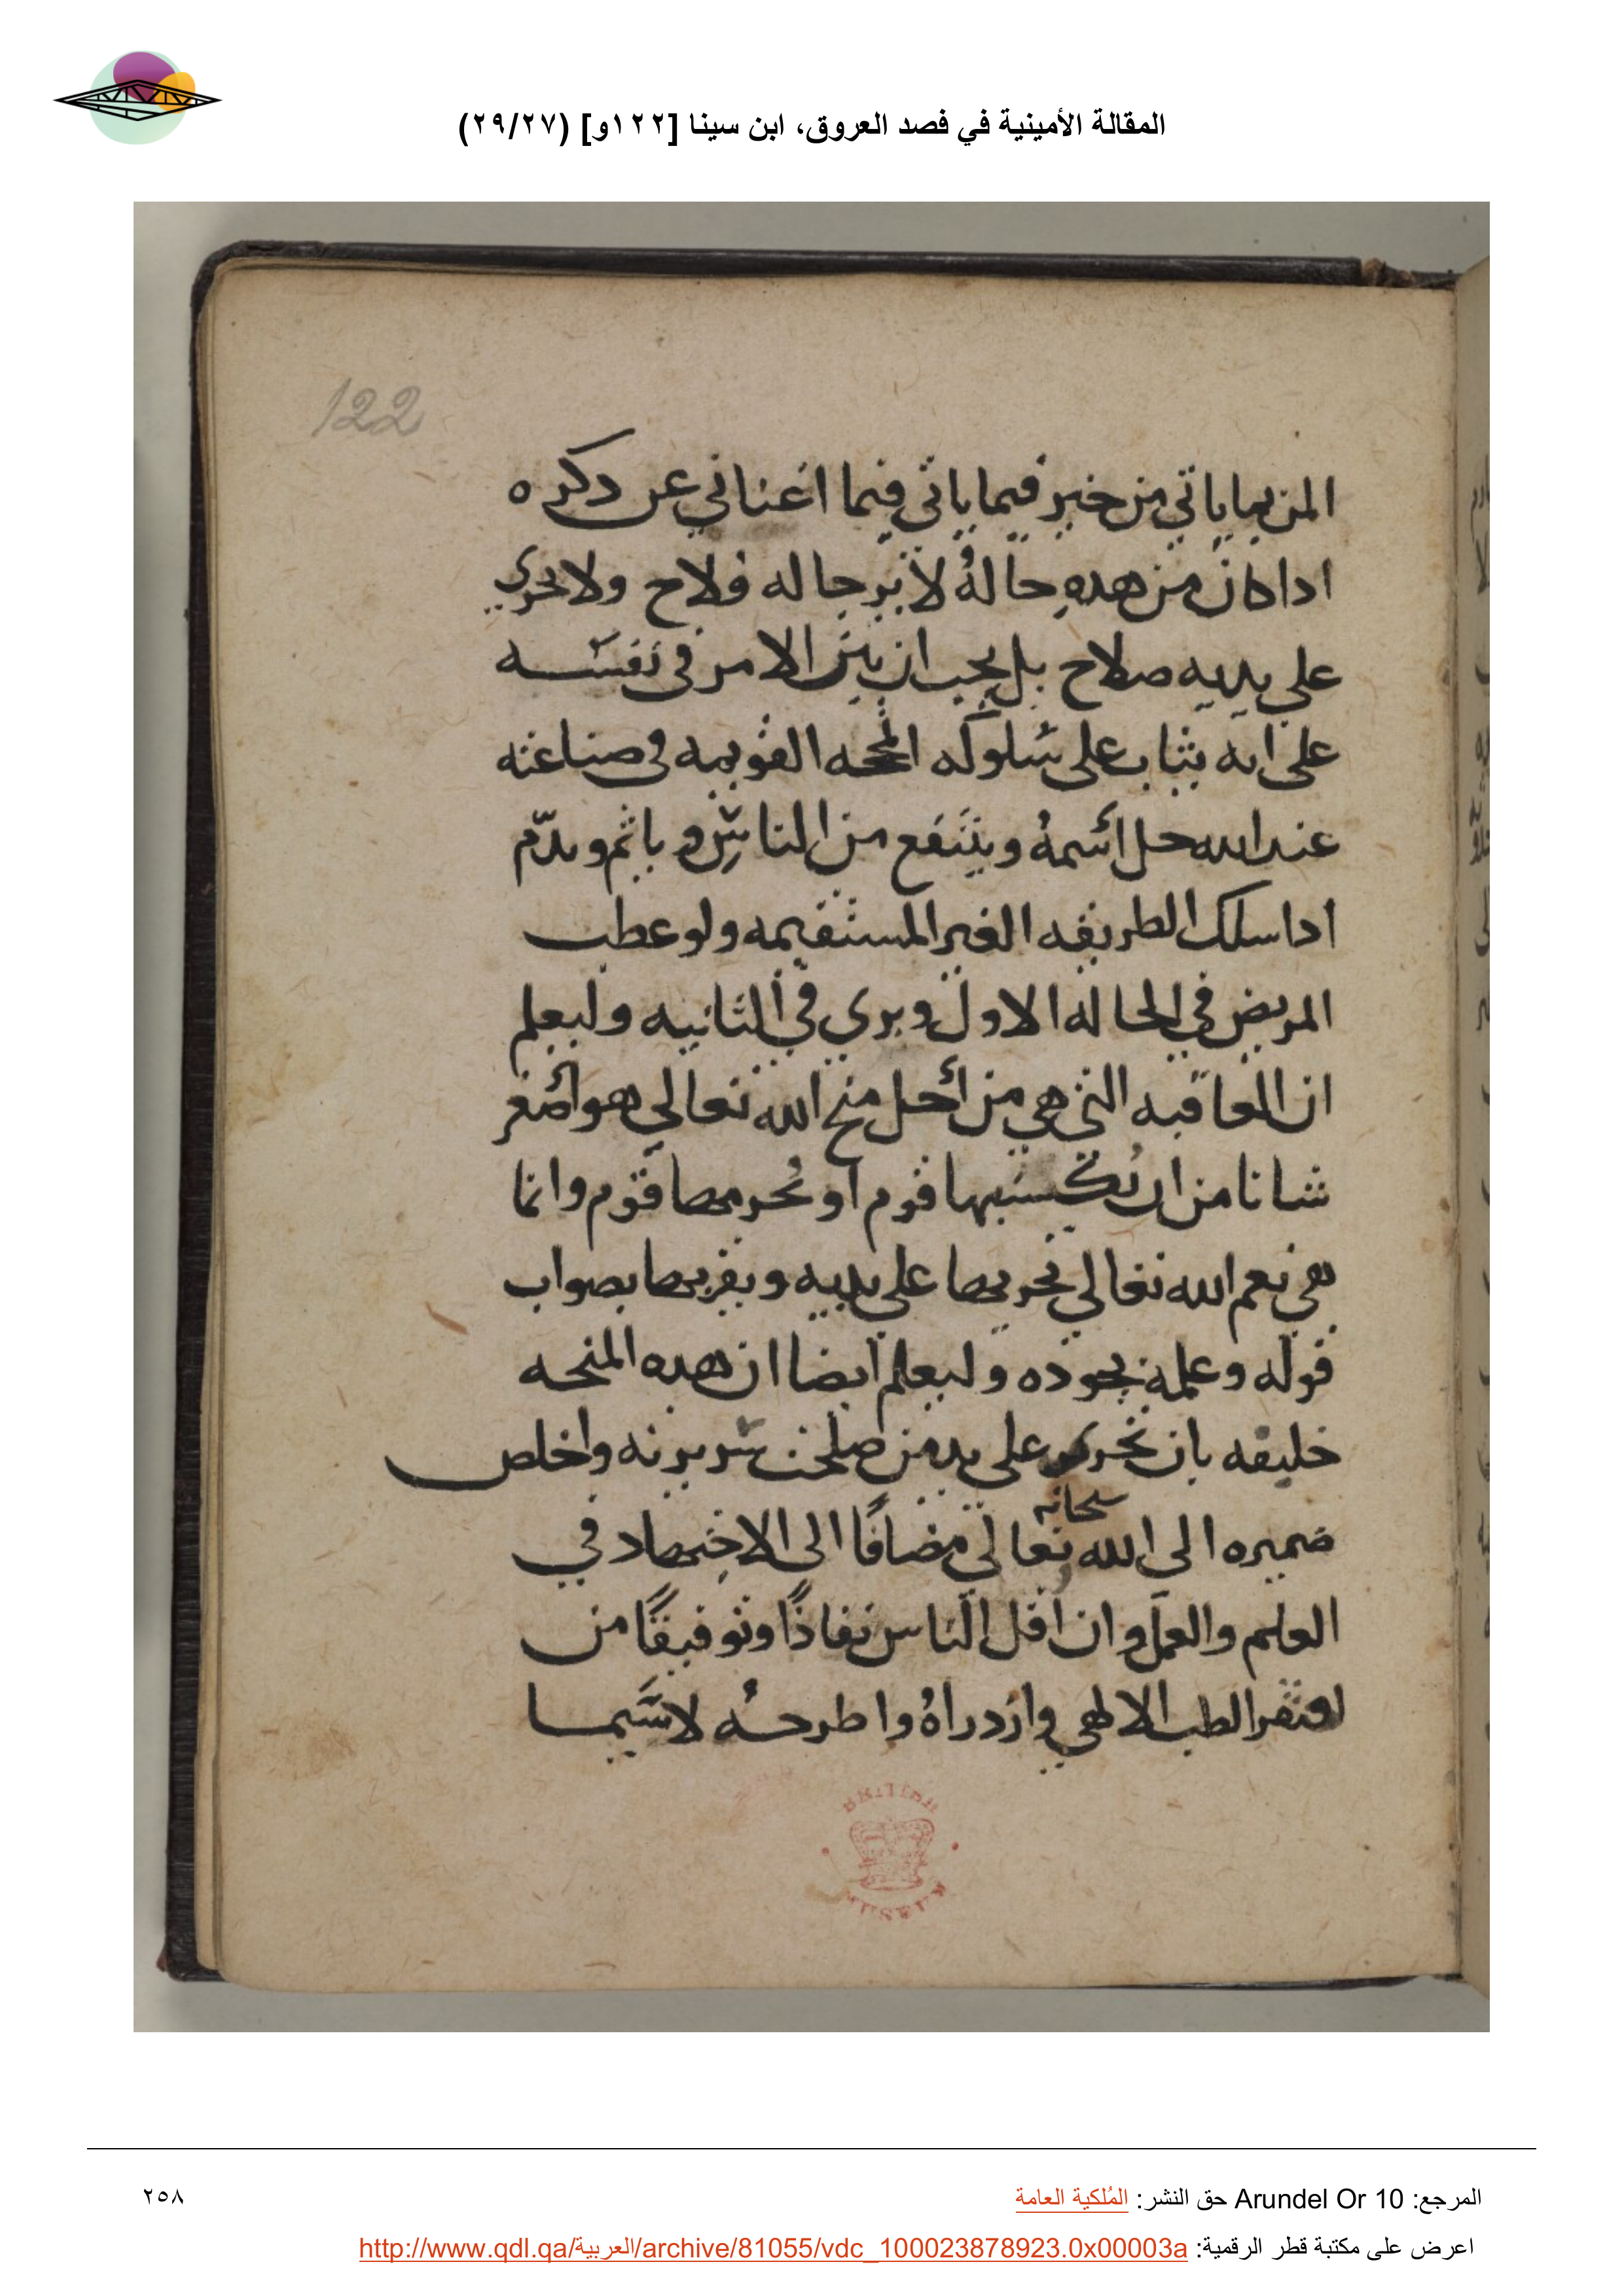 المقالة الأمينية في فصد العروق، ابن سينا [١٢٢و] (٢٩/٢٧)
122
المن بما ياتي من خير فيما ياتي فيما اغناني عن دكره
ادا كان من هده حالهُ لا يرجا له فلاح ولا يجري
على يديه صلاح بل يجب ان يبني الامر في نفسه
على انه يثاب على سلوكه المحجه القويمه في صناعته
عند الله جل اسمهُ وينتفع من الناس وياثم ويدّم
ادا سلك الطريقه الغير المستقيمه ولو عطب
المريض في الحاله الاول وبري في الثانيه وليعلم
ان العافيه التي هي من أجل منح الله تعالي هو اصغر
شانا من ان يكسبها قوم او يحرمها قوم وانما
هي نعم الله تعالي يجريها على يديه ويقربها بصواب
قوله وعلمه بجوده وليعلم ايضا ان هده المنحه
خليقه بان تجري على يد من صلحت سريرته واخلص
سبحانه
ضميره الى الله تعالي مضافًا الى الاجتهاد في
العلم والعمل وان اقل الناس نفاذًا وتوفيقًا من
الطب الالهي وازدراهُ واطرحهُ لا سيما
BRITISH MUSEUM
المرجع: Arundel Or 10 حق النشر: المُلكية العامة
٢٥٨
اعرض على مكتبة قطر الرقمية: http://www.qdl.qa/العربية/archive/81055/vdc_100023878923.0x00003a